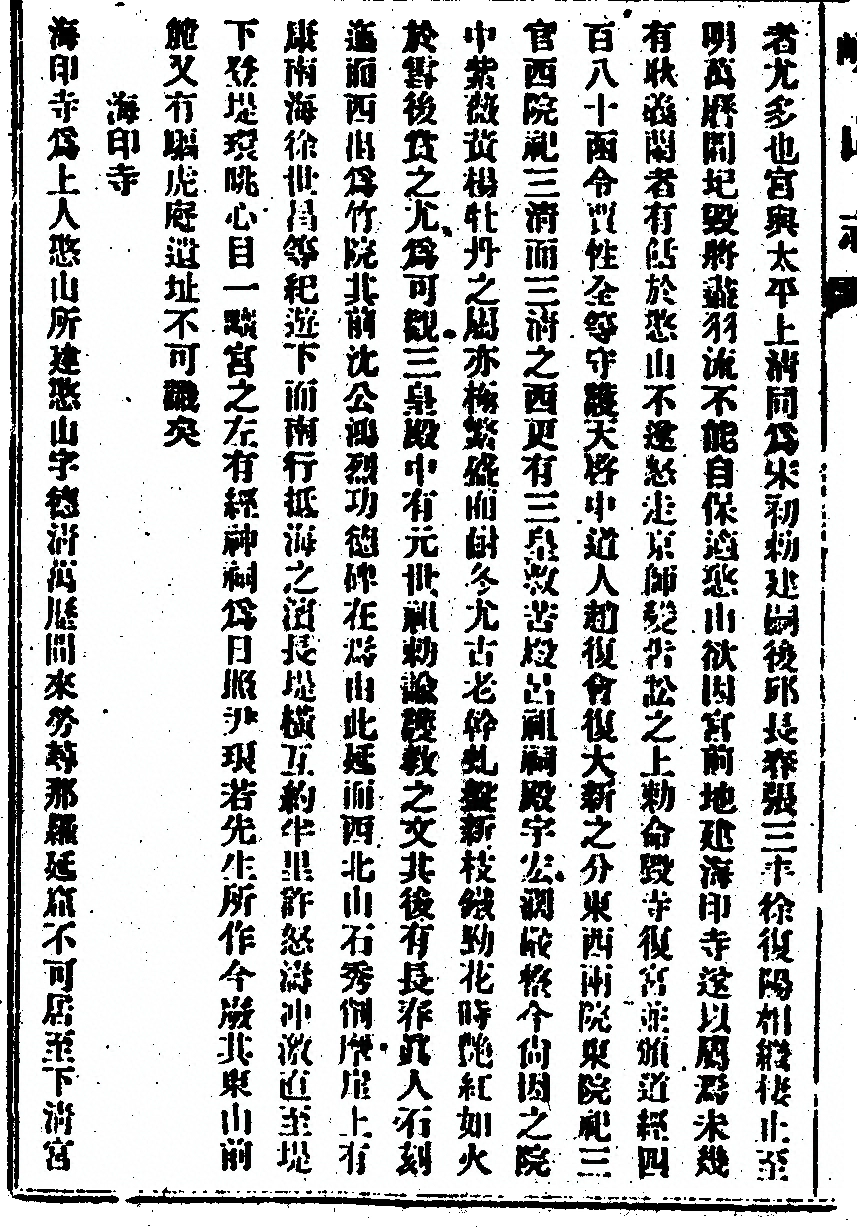 嶗山志
者尤多也宮與太平上清同為宋初勅建嗣後邱長春張三丰徐復陽相繼棲止至
明萬曆間圮毀將盡羽流不能自保適憨山欲因宮前地建海印寺遂以屬焉未幾
有耿義蘭者有憾於憨山不遂怒走京師變告訟之上勅命毀寺復宮並頒道經四
百八十函令賈性全等守護天啓中道人趙復會復大新之分東西兩院東院祀三
官西院祀三清而三清之西更有三皇救苦殿呂祖祠殿宇宏濶嚴整今尚因之院
中紫薇黃楊牡丹之屬亦極繁盛而耐冬尤古老幹虬盤新枝鐵勁花時艶紅如火
於雪後賞之尤為可觀三皇殿中有元世祖勅諭護教之文其後有長春眞人石刻
迤而西出為竹院其前沈公鴻烈功德碑在焉由此延而西北山石秀削摩崖上有
康南海徐世昌等紀遊下而南行抵海之濱長堤橫互約半里許怒濤冲激直至堤
下登堤環眺心目一豁宮之左有經神祠為日照尹琅若先生所作今歲其東山前
麓又有驅虎庵遺址不可識矣
海印寺
海印寺為上人憨山所建憨山字德清萬歷間來勞尋那羅延窟不可居至下清宮